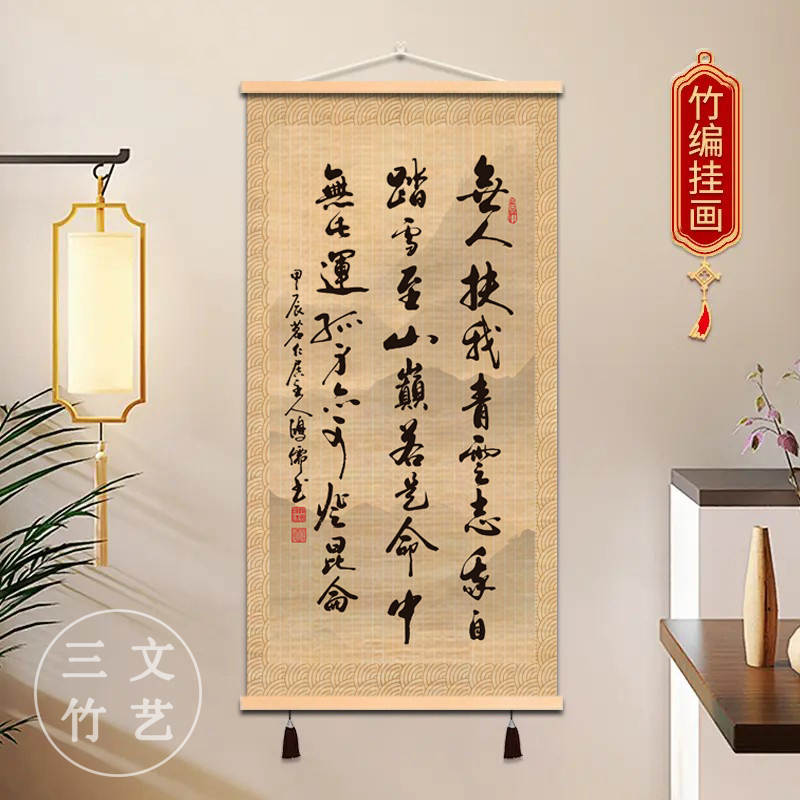 竹编挂画
無人扶我青雲志我自
踏雪至山巔若是命中
無此運孤身亦可登昆侖
甲辰茗仁居主人鴻儒书
三文
竹艺